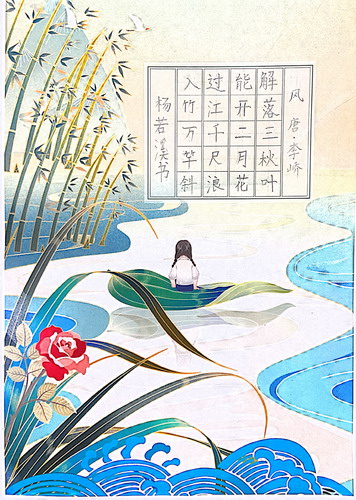 风 唐·李峤
解落三秋叶
能开二月花
过江千尺浪
入竹万竿斜
杨若溪书